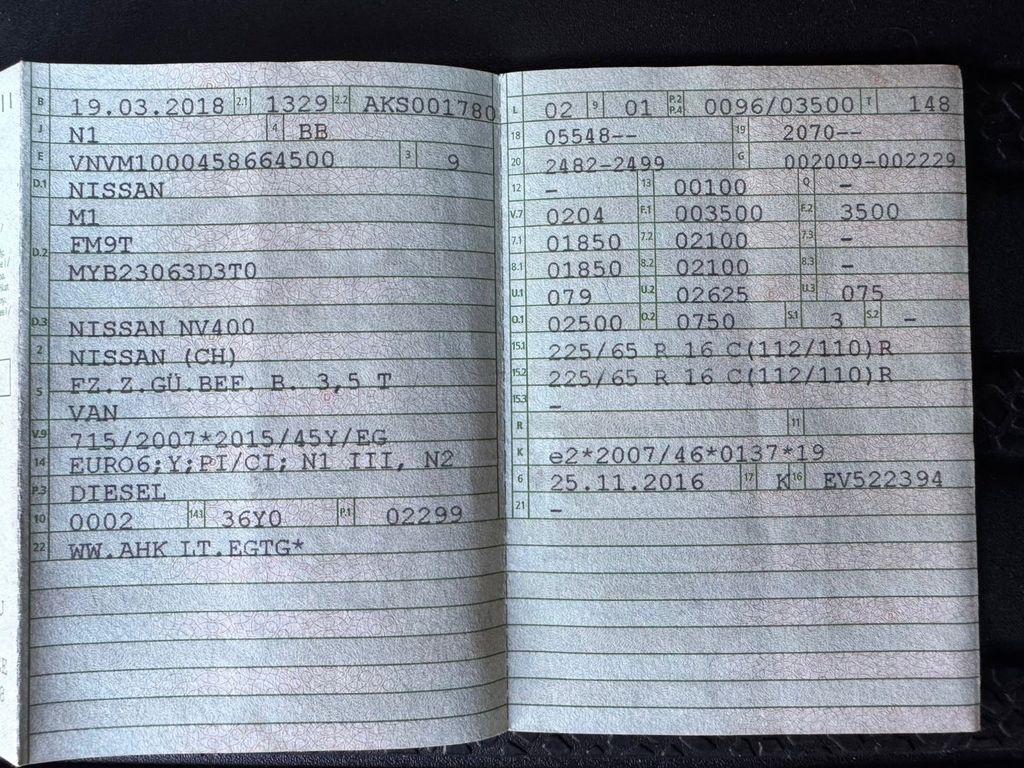 B 19.03.2018 2.1 1329 2.2 AKS001780
J N1 4 BB
E VNVM1000458664500 3 9
D.1 NISSAN
M1
D.2 FM9T
MYB23063D3T0
D.3 NISSAN NV400
2 NISSAN (CH)
5 FZ.Z.GÜ.BEF. B. 3,5 T
VAN
V.9 715/2007*2015/45Y/EG
14 EURO6;Y;PI/CI; N1 III, N2
P.3 DIESEL
10 0002 14.1 36Y0 P.1 02299
22 WW.AHK LT.EGTG*
L 02 9 01 P.2 P.4 0096/03500 T 148
18 05548-- 19 2070--
20 2482-2499 G 002009-002229
12 - 13 00100 Q -
V.7 0204 F.1 003500 F.2 3500
7.1 01850 7.2 02100 7.3 -
8.1 01850 8.2 02100 8.3 -
U.1 079 U.2 02625 U.3 075
O.1 02500 O.2 0750 S.1 3 S.2 -
15.1 225/65 R 16 C(112/110)R
15.2 225/65 R 16 C(112/110)R
15.3 -
R 11
K e2*2007/46*0137*19
6 25.11.2016 17 K 16 EV522394
21 -